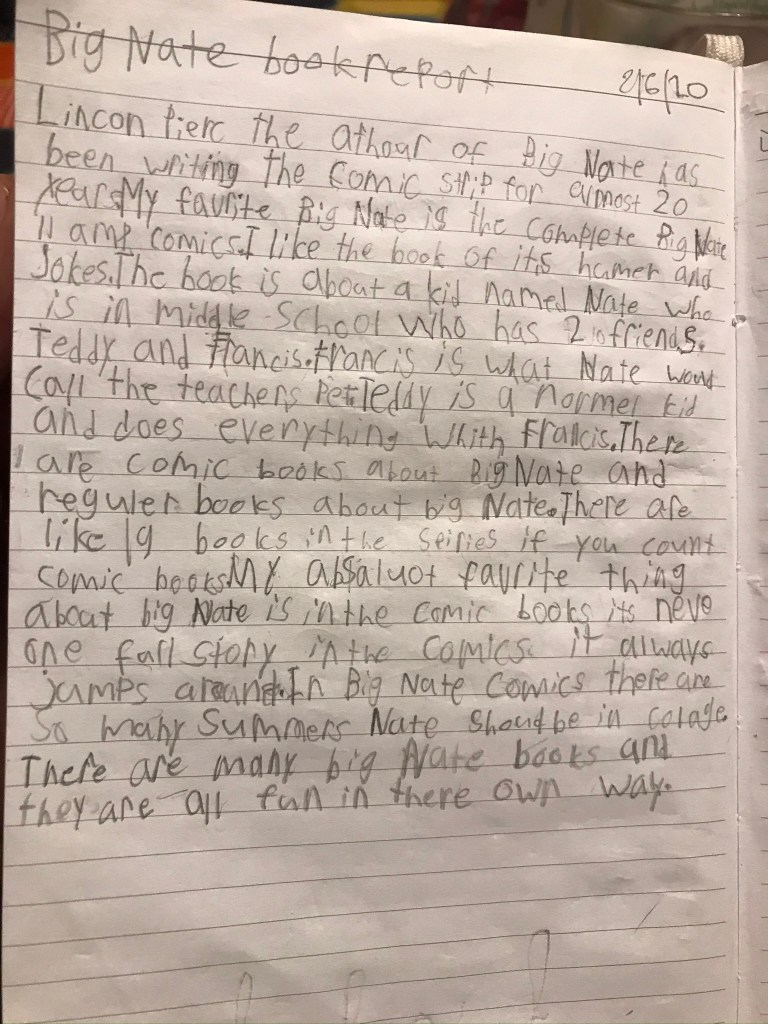 Big Nate book report
2/6/20
Lincon Pierc the athour of Big Nate has
been writing the Comic strip for almost 20
years.My favrite Big Nate is the complete Big Nate
comics.I like the book of its humer and
Jokes.The book is about a kid named Nate who
is in middle School who has 2 friends.
Teddy and francis.francis is what Nate woud
Call the teachers Pet.Teddy is a normel kid
and does everything whith francis.There
are comic books about Big Nate and
reguler books about big Nate.There are
like 19 books in the seiries if you count
comic books.My absaluot favrite thing
about big Nate is in the comic books its neve
one full story in the Comics. it always
jumps around.In Big Nate Comics there are
So many Summers Nate should be in colage.
There are many big Nate books and
they are all fun in there own way.